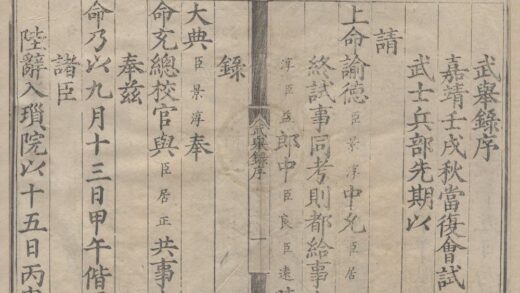 武舉錄序
嘉靖壬戌秋當復會試
武士兵部先期以
請
上命諭德臣景淳中允臣居
終試事同考則都給事
淳臣益郎中臣良臣遠
武舉錄序 一
錄
大典臣景淳奉
命充總校官與臣居正共事
奉茲
命乃以九月十三日甲午偕
諸臣
陛辭入瑣院以十五日丙